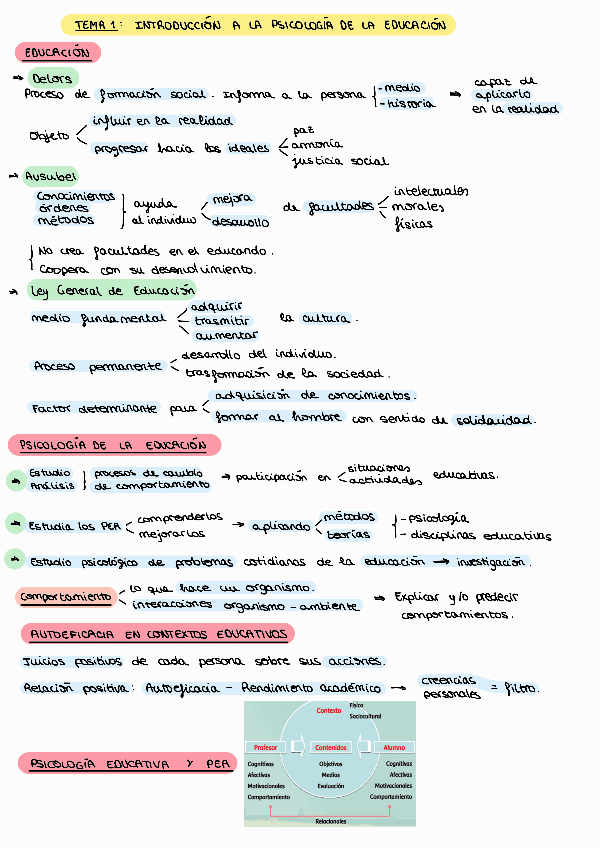 TEMA 1: INTRODUCCIÓN A LA PSICOLOGÍA DE LA EDUCACIÓN
EDUCACIÓN
→ Delors
Proceso de formación social. Informa a la persona { - medio - historia → capaz de aplicarlo en la realidad
Objeto < influir en la realidad
progresar hacia los ideales < paz armonía justicia social
→ Ausubel
Conocimientos órdenes métodos } ayuda al individuo < mejora desarrollo de facultades < intelectuales morales físicas
{ No crea facultades en el educando.
Coopera con su desenvolvimiento.
→ Ley General de Educación
medio fundamental < adquirir trasmitir aumentar la cultura.
Proceso permanente < desarrollo del individuo. trasformación de la sociedad.
Factor determinante para < adquisición de conocimientos. formar al hombre con sentido de solidaridad.
PSICOLOGÍA DE LA EDUCACIÓN
→ Estudio Análisis } procesos de cambio de comportamiento → participación en < situaciones actividades educativas.
→ Estudia los PEA < comprenderlos mejorarlos → aplicando < métodos teorías { - psicología - disciplinas educativas
→ Estudio psicológico de problemas cotidianos de la educación → investigación.
Comportamiento < lo que hace un organismo. interacciones organismo - ambiente → Explicar y/o predecir comportamientos.
AUTOEFICACIA EN CONTEXTOS EDUCATIVOS
Juicios positivos de cada persona sobre sus acciones.
Relación positiva: Autoeficacia - Rendimiento académico → creencias personales = filtro.
PSICOLOGÍA EDUCATIVA Y PEA
Contexto
Físico
Sociocultural
Profesor
Cognitivas
Afectivas
Motivacionales
Comportamiento
Contenidos
Objetivos
Medios
Evaluación
Alumno
Cognitivas
Afectivas
Motivacionales
Comportamiento
Relacionales